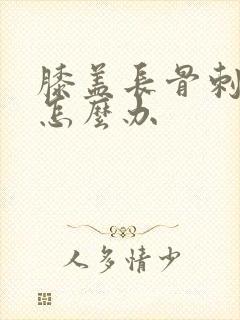 膝盖長骨刺
怎麼办
人多情少